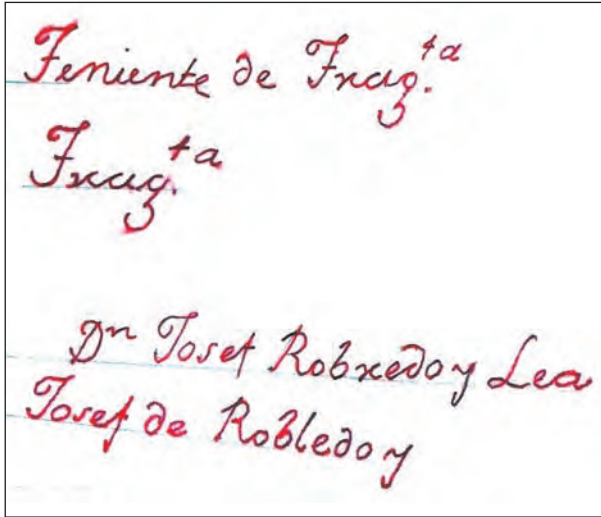 Teniente de Frag.ta
Frag.ta
Dn Josef Robredo y Lea
Josef de Robledo y